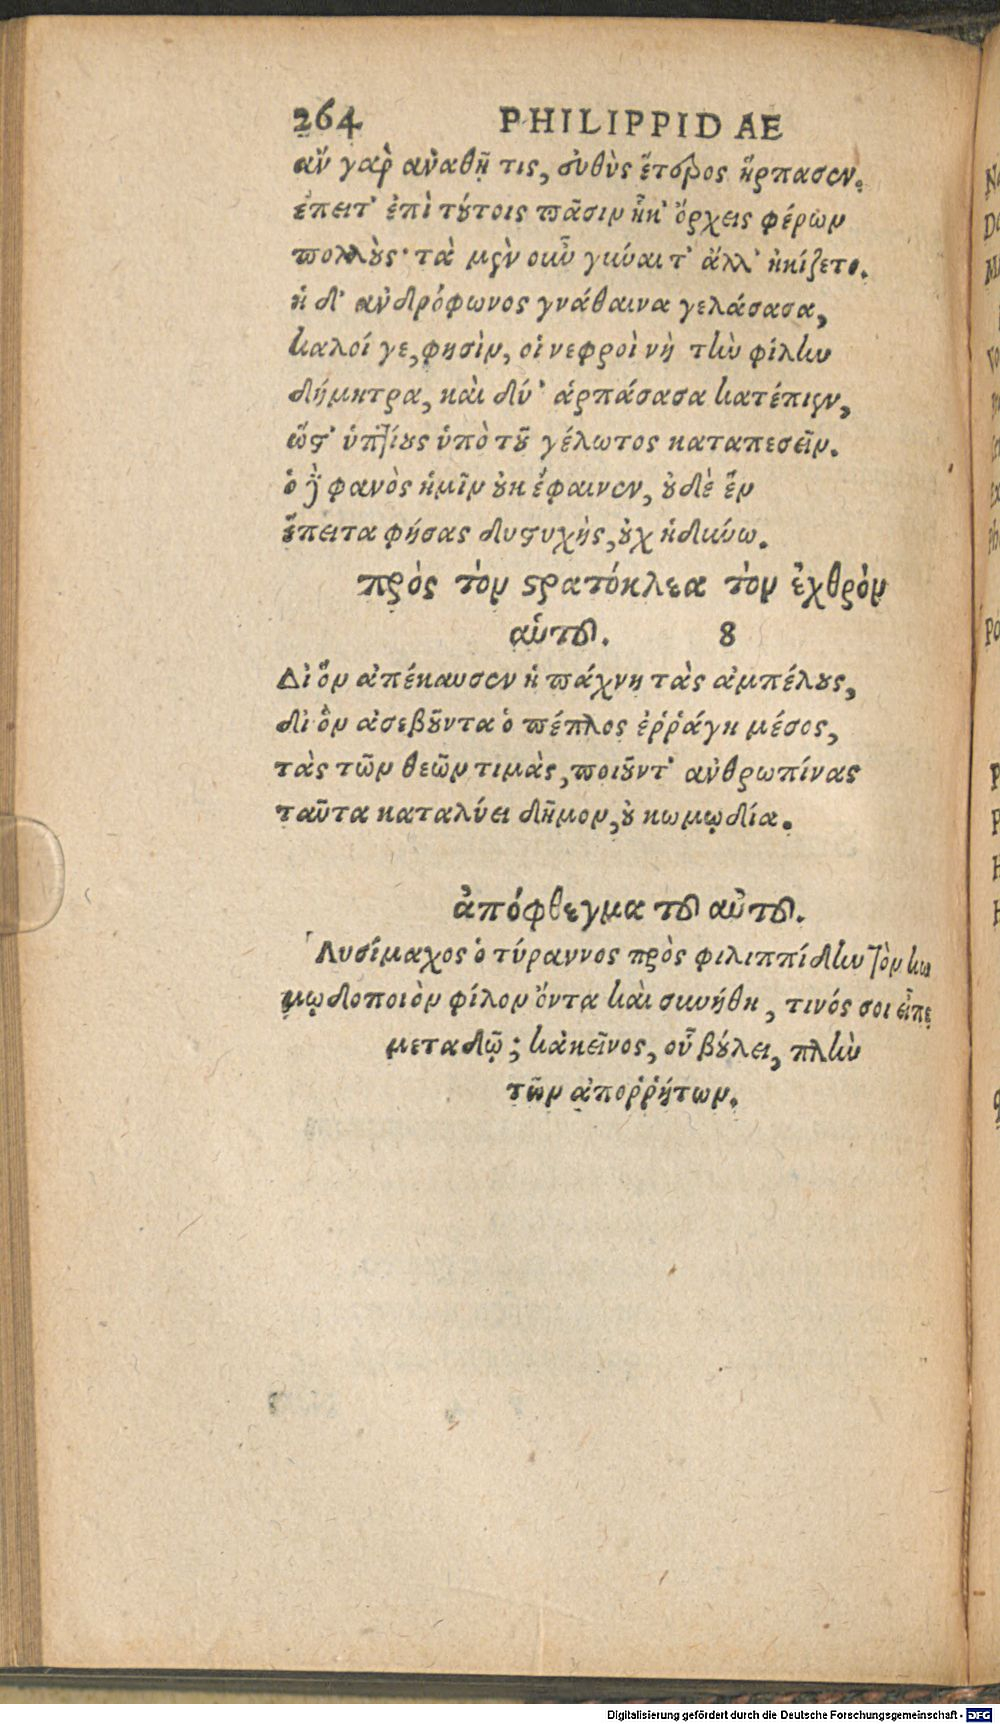 264 PHILIPPIDAE
ἂν γαὶρ ἀναθῇ τις, εὐθὺς ἕτερος ἥρπασεν.
ἔπειτ' ἐπὶ τούτοις πᾶσιν ἧκ' ὄρχεις φέρων
πολλοὺς· τὰ μὲν οὖν γύναι τ' ἄλλ' ἠκίζετο.
ἡ δ' ἀνδρόφωνος γνάθαινα γελάσασα,
καλοί γε, φησὶν, οἱ νεφροὶ νὴ τὴν φίλην
δήμητρα, καὶ δύ' ἁρπάσασα κατέπιεν,
ὥστ' ὑπτίους ὑπὸ τοῦ γέλωτος καταπεσεῖν.
ὁ φανὸς ἡμῖν οὐκ ἔφαινεν, οὐδὲ ἓν
ἔπειτα φήσας δυστυχὴς, οὐχ ἠδύνω.
πρὸς τὸν στρατόκλεα τὸν ἐχθρὸν
αὑτοῦ. 8
Δι ὃν ἀπέκαυσεν ἡ πάχνη τὰς ἀμπέλους,
δι ὃν ἀσεβοῦντα ὁ πέπλος ἐῤῥάγη μέσος,
τὰς τῶν θεῶν τιμὰς, ποιοῦντ' ἀνθρωπίνας
ταῦτα καταλύει δῆμον, οὐ κωμῳδία.
ἀπόφθεγμα τοῦ αὐτοῦ.
Λυσίμαχος ὁ τύραννος πρὸς φιλιππίδην τὸν κω
μῳδοποιὸν φίλον ὄντα καὶ συνήθη, τινός σοι εἶπε
μεταδῶ; κἀκεῖνος, οὗ βούλει, πλὴν
τῶν ἀποῤῥήτων.
Digitalisierung gefördert durch die Deutsche Forschungsgemeinschaft - DFG